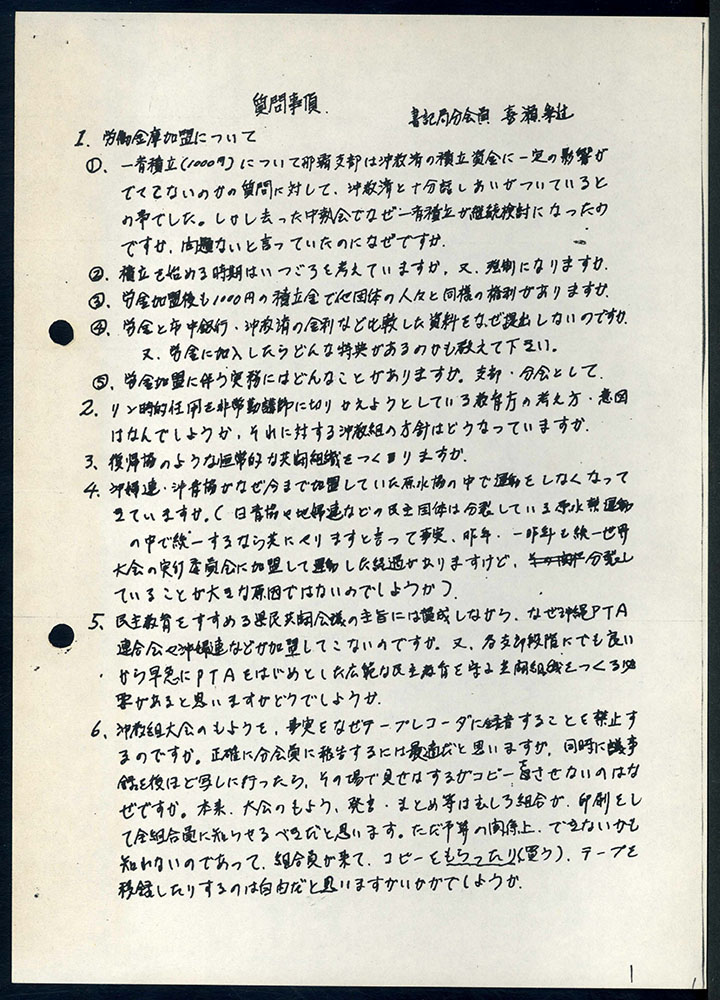 質問事項
書記局分会員 喜瀬
1. 労働金庫加盟について
①. 一斉積立(1000円)について那覇支部は沖教済の積立資金に一定の影響が
でてこないのかの質問に対して、沖教済と十分話しあいがついていると
の事でした。しかし去った中執会でなぜ一斉積立が継続検討になったの
ですか、問題ないと言っていたのになぜですか.
②. 積立を始める時期はいつごろを考えていますか。又、強制になりますか.
③. 労金加盟後も1000円の積立金で他団体の人々と同様の権利がありますか.
④. 労金と市中銀行・沖教済の金利など比較した資料をなぜ提出しないのですか.
又、労金に加入したらどんな特典があるのかも教えて下さい。
⑤. 労金加盟に伴う実務にはどんなことがありますか。支部・分会として.
2. リン時的任用を非常勤講師に切りかえようとしている教育庁の考え方・意図
はなんでしょうか、それに対する沖教組の方針はどうなっていますか.
3. 復帰協のような恒常的な共闘組織をつくりますか.
4. 沖婦連・沖青協がなぜ今まで加盟していた原水協の中で運動をしなくなって
きていますか。(日青協や地婦連などの民主団体は分裂している原水禁運動
の中で統一するなら共にやりますと言って事実、昨年・一昨年も統一世界
大会の実行委員会に加盟して運動した経過がありますけど、分裂し
ていることが大きな原因ではないのでしょうか).
5. 民主教育をすすめる県民共闘会議の主旨には賛成しながら、なぜ沖縄PTA
連合会や沖婦連などが加盟してこないのですか。又、各支部段階にでも良い
から早急にPTAをはじめとした広範な民主教育を守る共闘組織をつくる必
要があると思いますがどうでしょうか.
6. 沖教組大会のもようを、事実をなぜテープレコーダに録音することを禁止す
るのですか。正確に分会員に報告するには最適だと思いますが、同時に議事
録を後ほど写しに行ったら、その場で見せはするがコピーをさせないのはな
ぜですか。本来、大会のもよう、発言・まとめ等はむしろ組合が、印刷をし
て全組合員に知らせるべきだと思います。ただ予算の関係上、できないかも
知れないのであって、組合員が来て、コピーをもらったり(買う)、テープを
移録したりするのは自由だと思いますがいかがでしょうか.
1